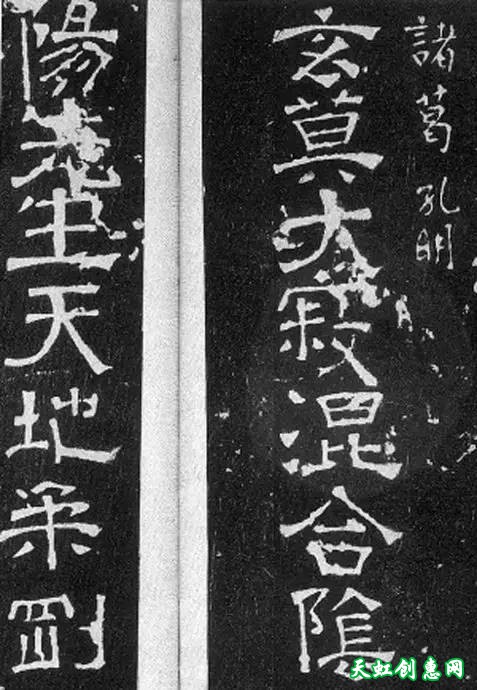 諸葛孔明
玄莫大寂混合陰
陽生天地柔剛
天虹创惠网